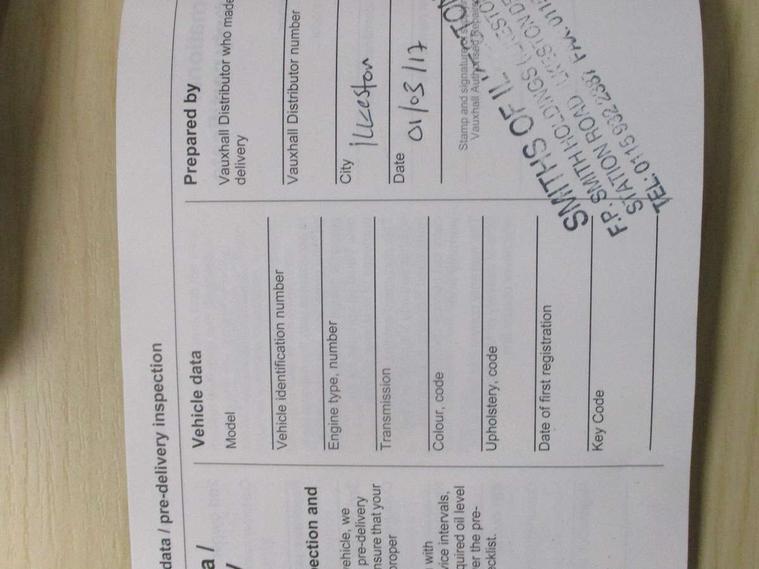 data / pre-delivery inspection
a /
ection and
vehicle, we
pre-delivery
nsure that your
proper
with
vice intervals,
quired oil level
er the pre-
cklist.
Vehicle data
Model
Vehicle identification number
Engine type, number
Transmission
Colour, code
Upholstery, code
Date of first registration
Key Code
Prepared by
Vauxhall Distributor who made
delivery
Vauxhall Distributor number
City ilkeston
Date 01/03/17
Stamp and signature of
Vauxhall Authorised Repairer
SMITHS OF
F.P. SMITH HOLDINGS
STATION ROAD
TEL: 0115 932 2387 FAX: 011